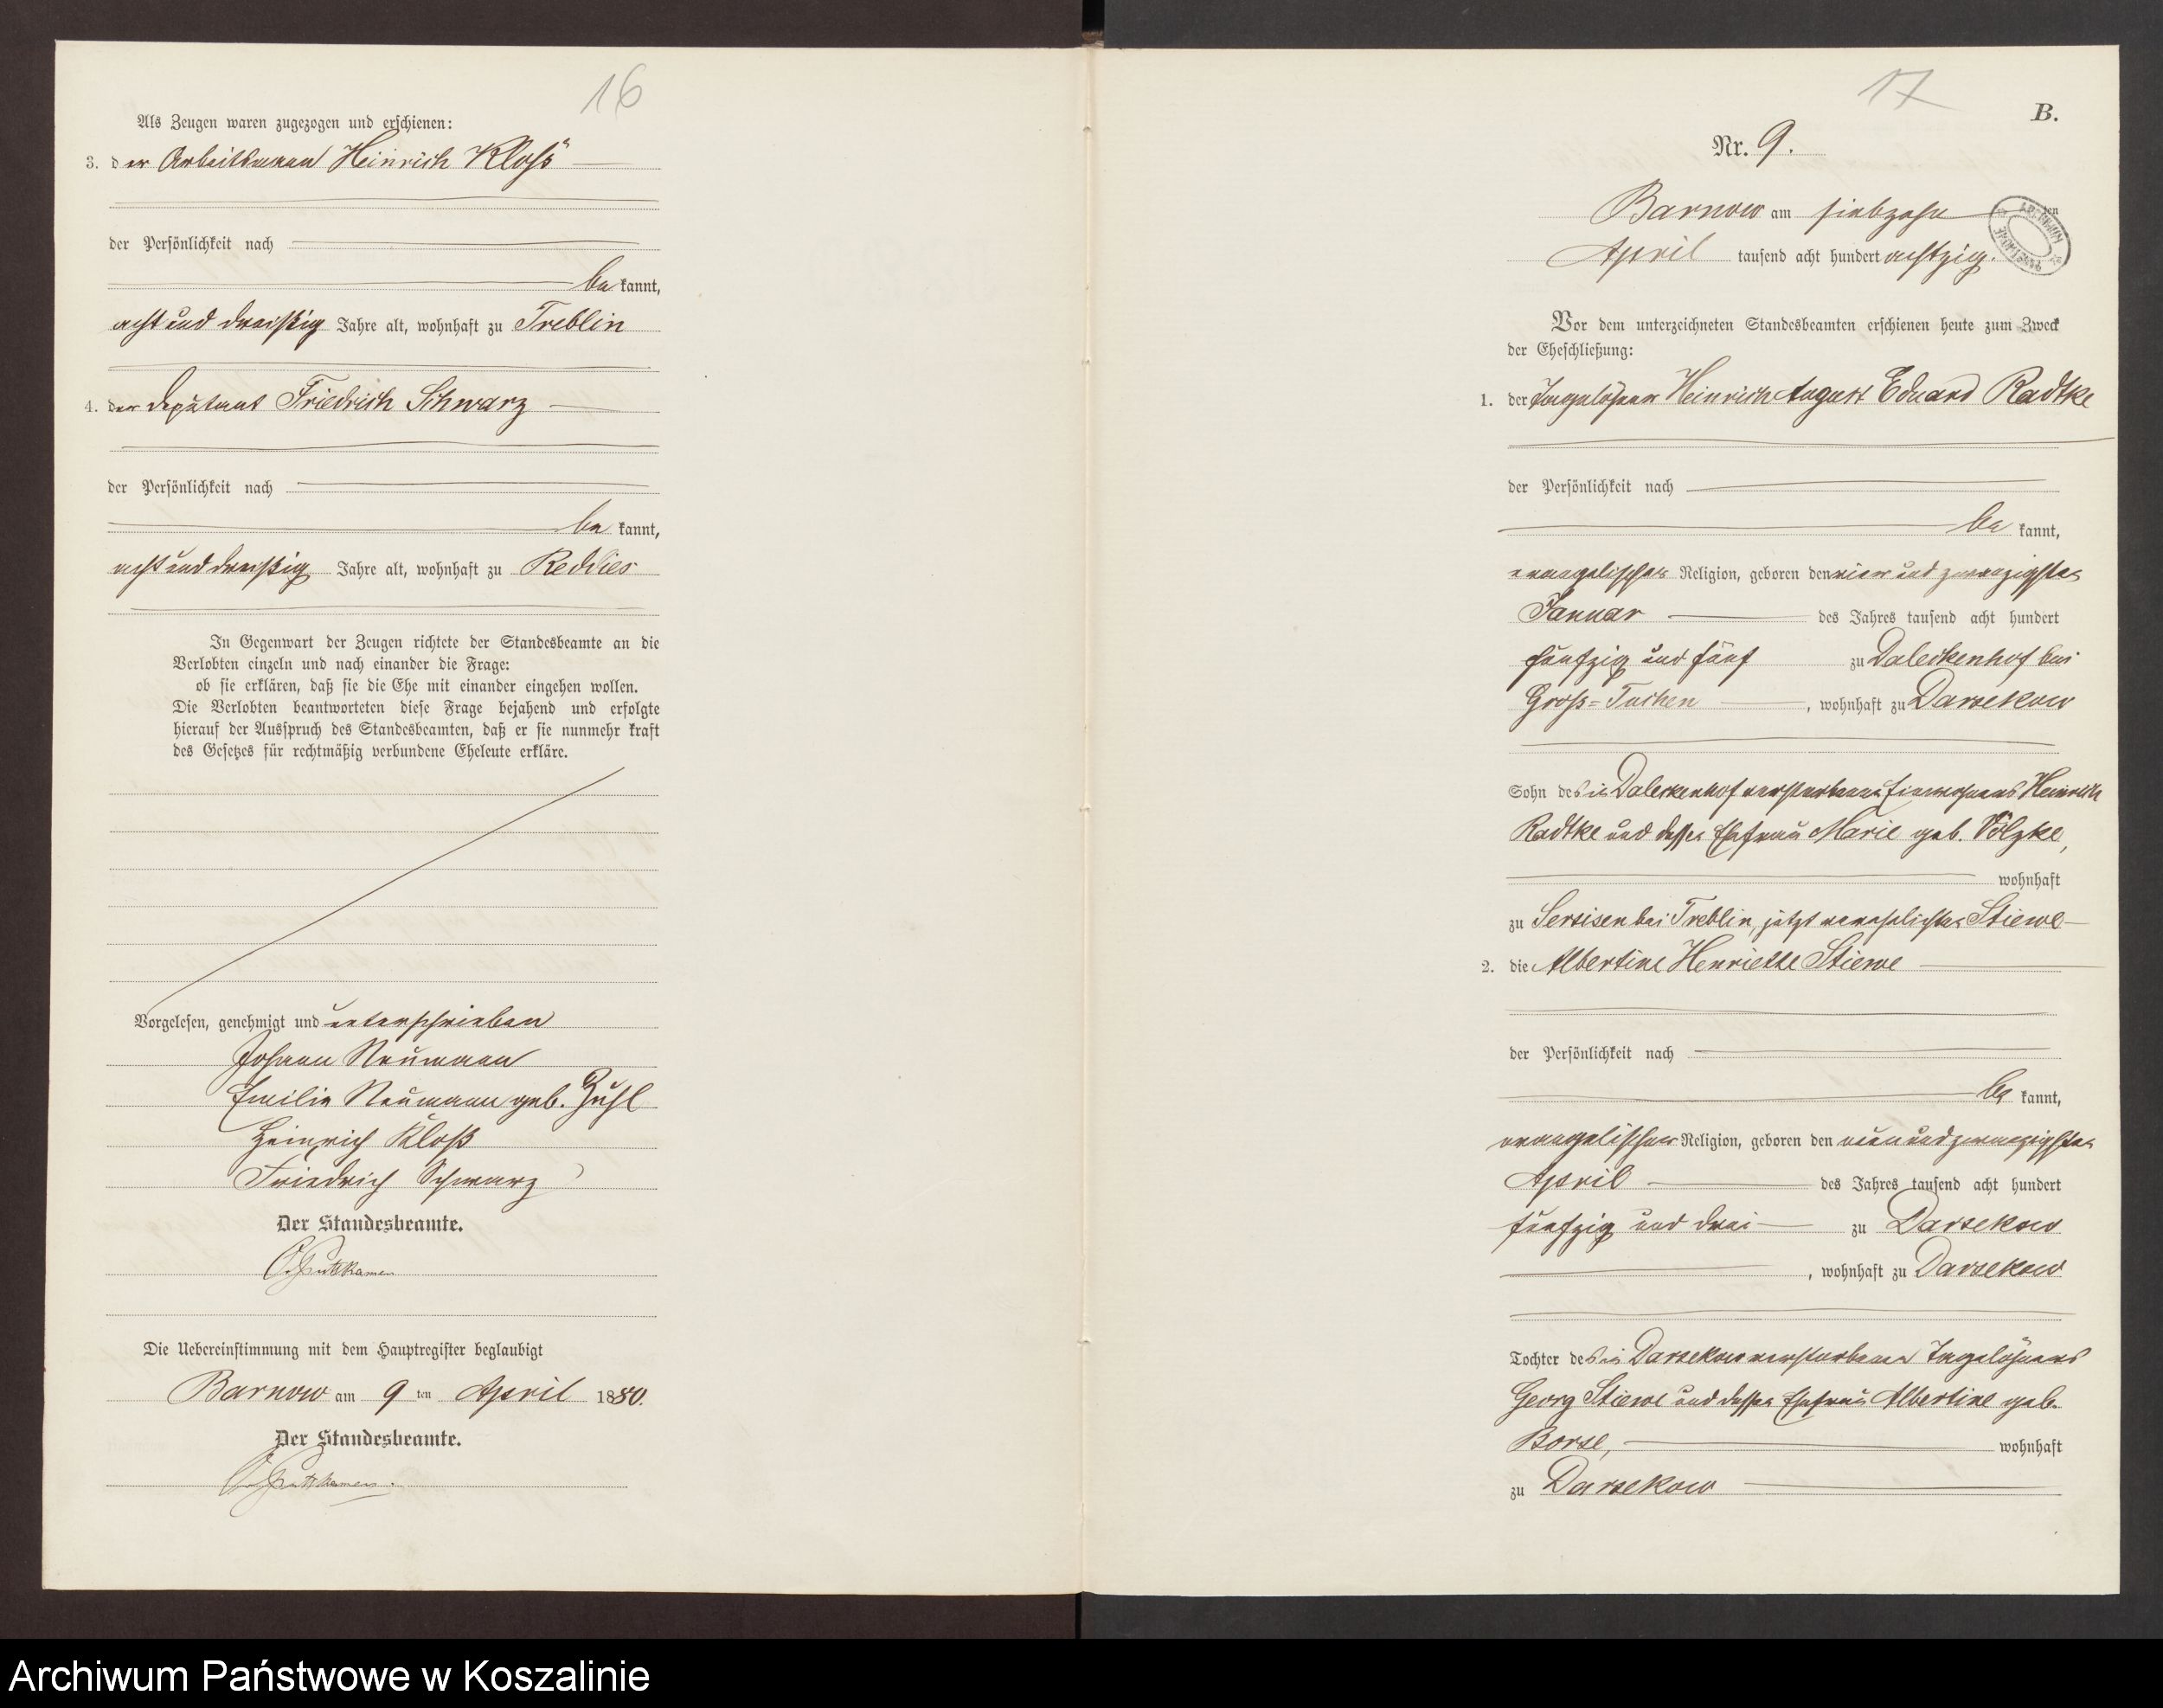 16
Als Zeugen waren zugezogen und erschienen:
3. der Arbeitsmann Heinrich Kloß
der Persönlichkeit nach
be kannt,
acht und dreißig Jahre alt, wohnhaft zu Treblin
4. der Deputant Friedrich Schwarz
der Persönlichkeit nach
be kannt,
acht und dreißig Jahre alt, wohnhaft zu Reddies
In Gegenwart der Zeugen richtete der Standesbeamte an die
Verlobten einzeln und nach einander die Frage:
ob sie erklären, daß sie die Ehe mit einander eingehen wollen.
Die Verlobten beantworteten diese Frage bejahend und erfolgte
hierauf der Ausspruch des Standesbeamten, daß er sie nunmehr kraft
des Gesetzes für rechtmäßig verbundene Eheleute erkläre.
Vorgelesen, genehmigt und unterschrieben
Johann Neumann
Emilie Neumann geb. Zuhl
Heinrich Kloß
Friedrich Schwarz
Der Standesbeamte.
Puttkamer
Die Uebereinstimmung mit dem Hauptregister beglaubigt
Barnow am 9 ten April 1880.
Der Standesbeamte.
Puttkamer.
17
B.
Nr. 9.
Barnow am siebzehn ten
April tausend acht hundert achtzig.
Vor dem unterzeichneten Standesbeamten erschienen heute zum Zweck
der Eheschließung:
1. der Tagelöhner Heinrich August Eduard Radtke
der Persönlichkeit nach
be kannt,
evangelischer Religion, geboren den vier und zwanzigsten
Januar des Jahres tausend acht hundert
fünfzig und fünf zu Daleckenhof bei
Groß-Tuchen, wohnhaft zu Darsekow
Sohn des in Daleckenhof verstorbenen Einwohners Heinrich
Radtke und dessen Ehefrau Marie geb. Völzke,
wohnhaft
zu Sersisen bei Treblin, jetzt verehelichten Stiewe
2. die Albertine Henriette Stiewe
der Persönlichkeit nach
be kannt,
evangelischer Religion, geboren den neun und zwanzigsten
April des Jahres tausend acht hundert
fünfzig und drei zu Darsekow
, wohnhaft zu Darsekow
Tochter des in Darsekow verstorbenen Tagelöhners
Georg Stiewe und dessen Ehefrau Albertine geb.
Borse, wohnhaft
zu Darsekow
Archiwum Państwowe w Koszalinie